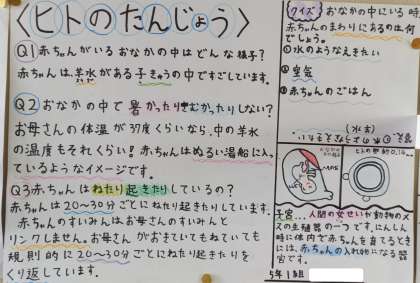 〈ヒトのたんじょう〉
Q1 赤ちゃんがいるおなかの中はどんな様子?
赤ちゃんは羊水がある子きゅうの中ですごしています。
Q2 おなかの中で暑かったりさむかったりしない?
お母さんの体温が37度くらいなら、中の羊水
の温度もそれくらい!赤ちゃんはぬるい湯船に入っ
ているようなイメージです。
Q3 赤ちゃんはねたり起きたりしているの?
赤ちゃんは20〜30分ごとにねたり起きたりしています。
赤ちゃんのすいみんはお母さんのすいみんと
リンクしません。お母さんがおきていてもねていても
規則的に20〜30分ごとにねたり起きたりを
くり返しています。
クイズ おなかの中にいる時
赤ちゃんのまわりにあるのは何
でしょう。
①水のようなえきたい
②空気
③赤ちゃんのごはん
子宮…人間の女せいか動物のメ
スの生殖器の一つです。にんしん
時に体内で赤ちゃんを育てるとき
には、赤ちゃんの入れ物になる器
官です。
5年1組